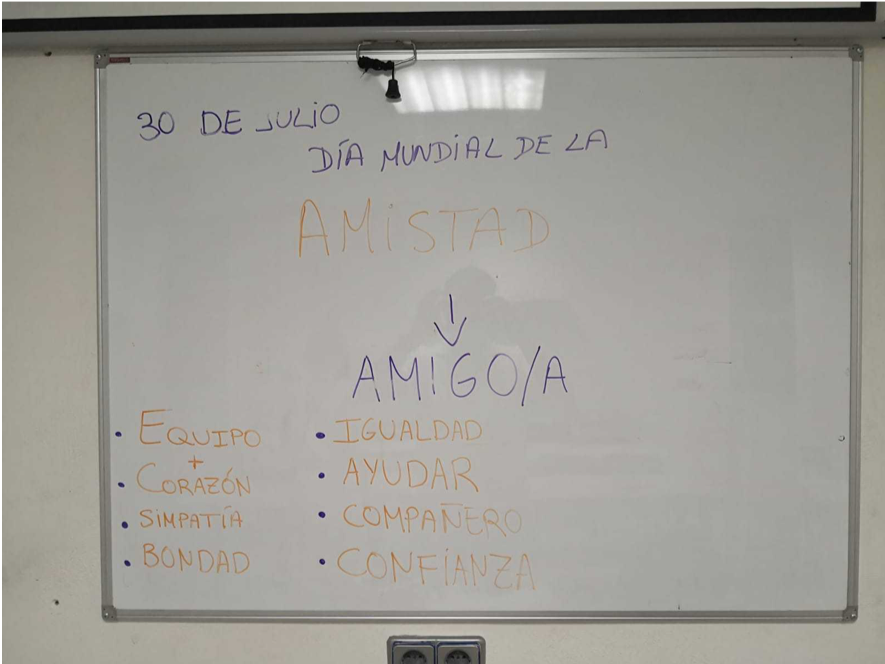 30 DE JULIO
DÍA MUNDIAL DE LA
AMISTAD
↓
AMIGO/A
• EQUIPO
+
• CORAZÓN
• SIMPATÍA
• BONDAD
• IGUALDAD
• AYUDAR
• COMPAÑERO
• CONFIANZA